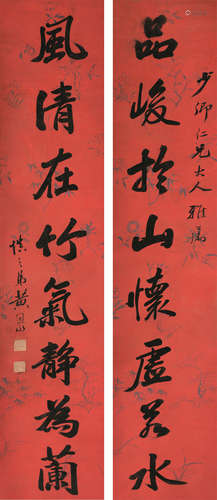 品峻於山懷虛若水
少卿仁兄大人雅屬
風清在竹氣靜為蘭
慎之弟黃